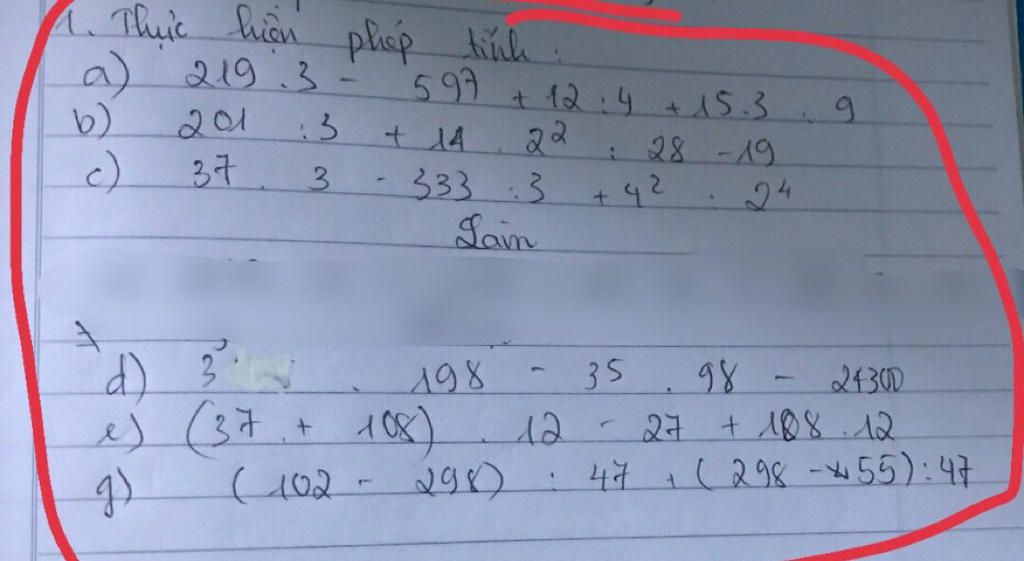 1. Thực hiện phép tính:
a) 219 . 3 - 597 + 12 : 4 + 15.3 . 9
b) 201 : 3 + 14 . 2² : 28 - 19
c) 37 . 3 - 333 : 3 + 4² : 2⁴
d) 3 . 198 - 35 . 98 - 24300
e) (37 + 108) . 12 - 27 + 108 . 12
g) (102 - 298) : 47 + (298 - 55) : 47